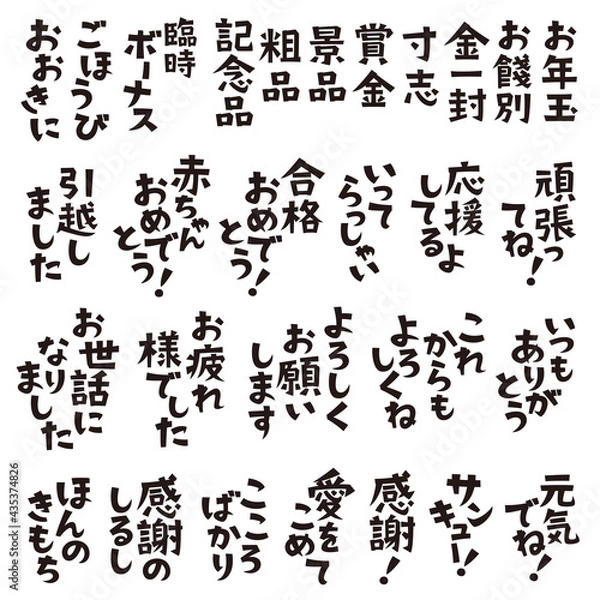 お年玉
お餞別
金一封
寸志
賞金
景品
粗品
記念品
臨時
ボーナス
ごほうび
おおきに
頑張っ
てね！
応援
してるよ
いって
らっしゃい
合格
おめで
とう！
赤ちゃん
おめで
とう！
引越し
ました
いつも
ありが
とう
これ
からも
よろ
しくね
よろしく
お願い
します
お疲れ
様でした
お世話に
なり
ました
元気
でね！
サン
キュー！
感謝！
愛を
こめて
こころ
ばかり
感謝の
しるし
ほんの
きもち
Adobe Stock | #435374826